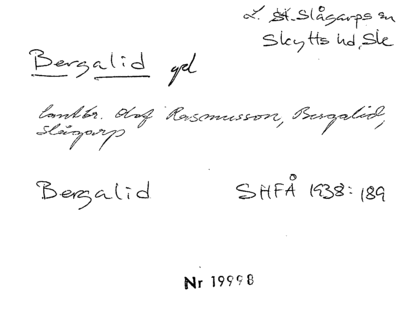 L. St. Slågarps sn
Skytts hd, Sk
Bergalid gd
lantbr. Olof Rasmusson, Bergalid,
Slågarp
Bergalid SHFÅ 1938: 189
Nr 19998